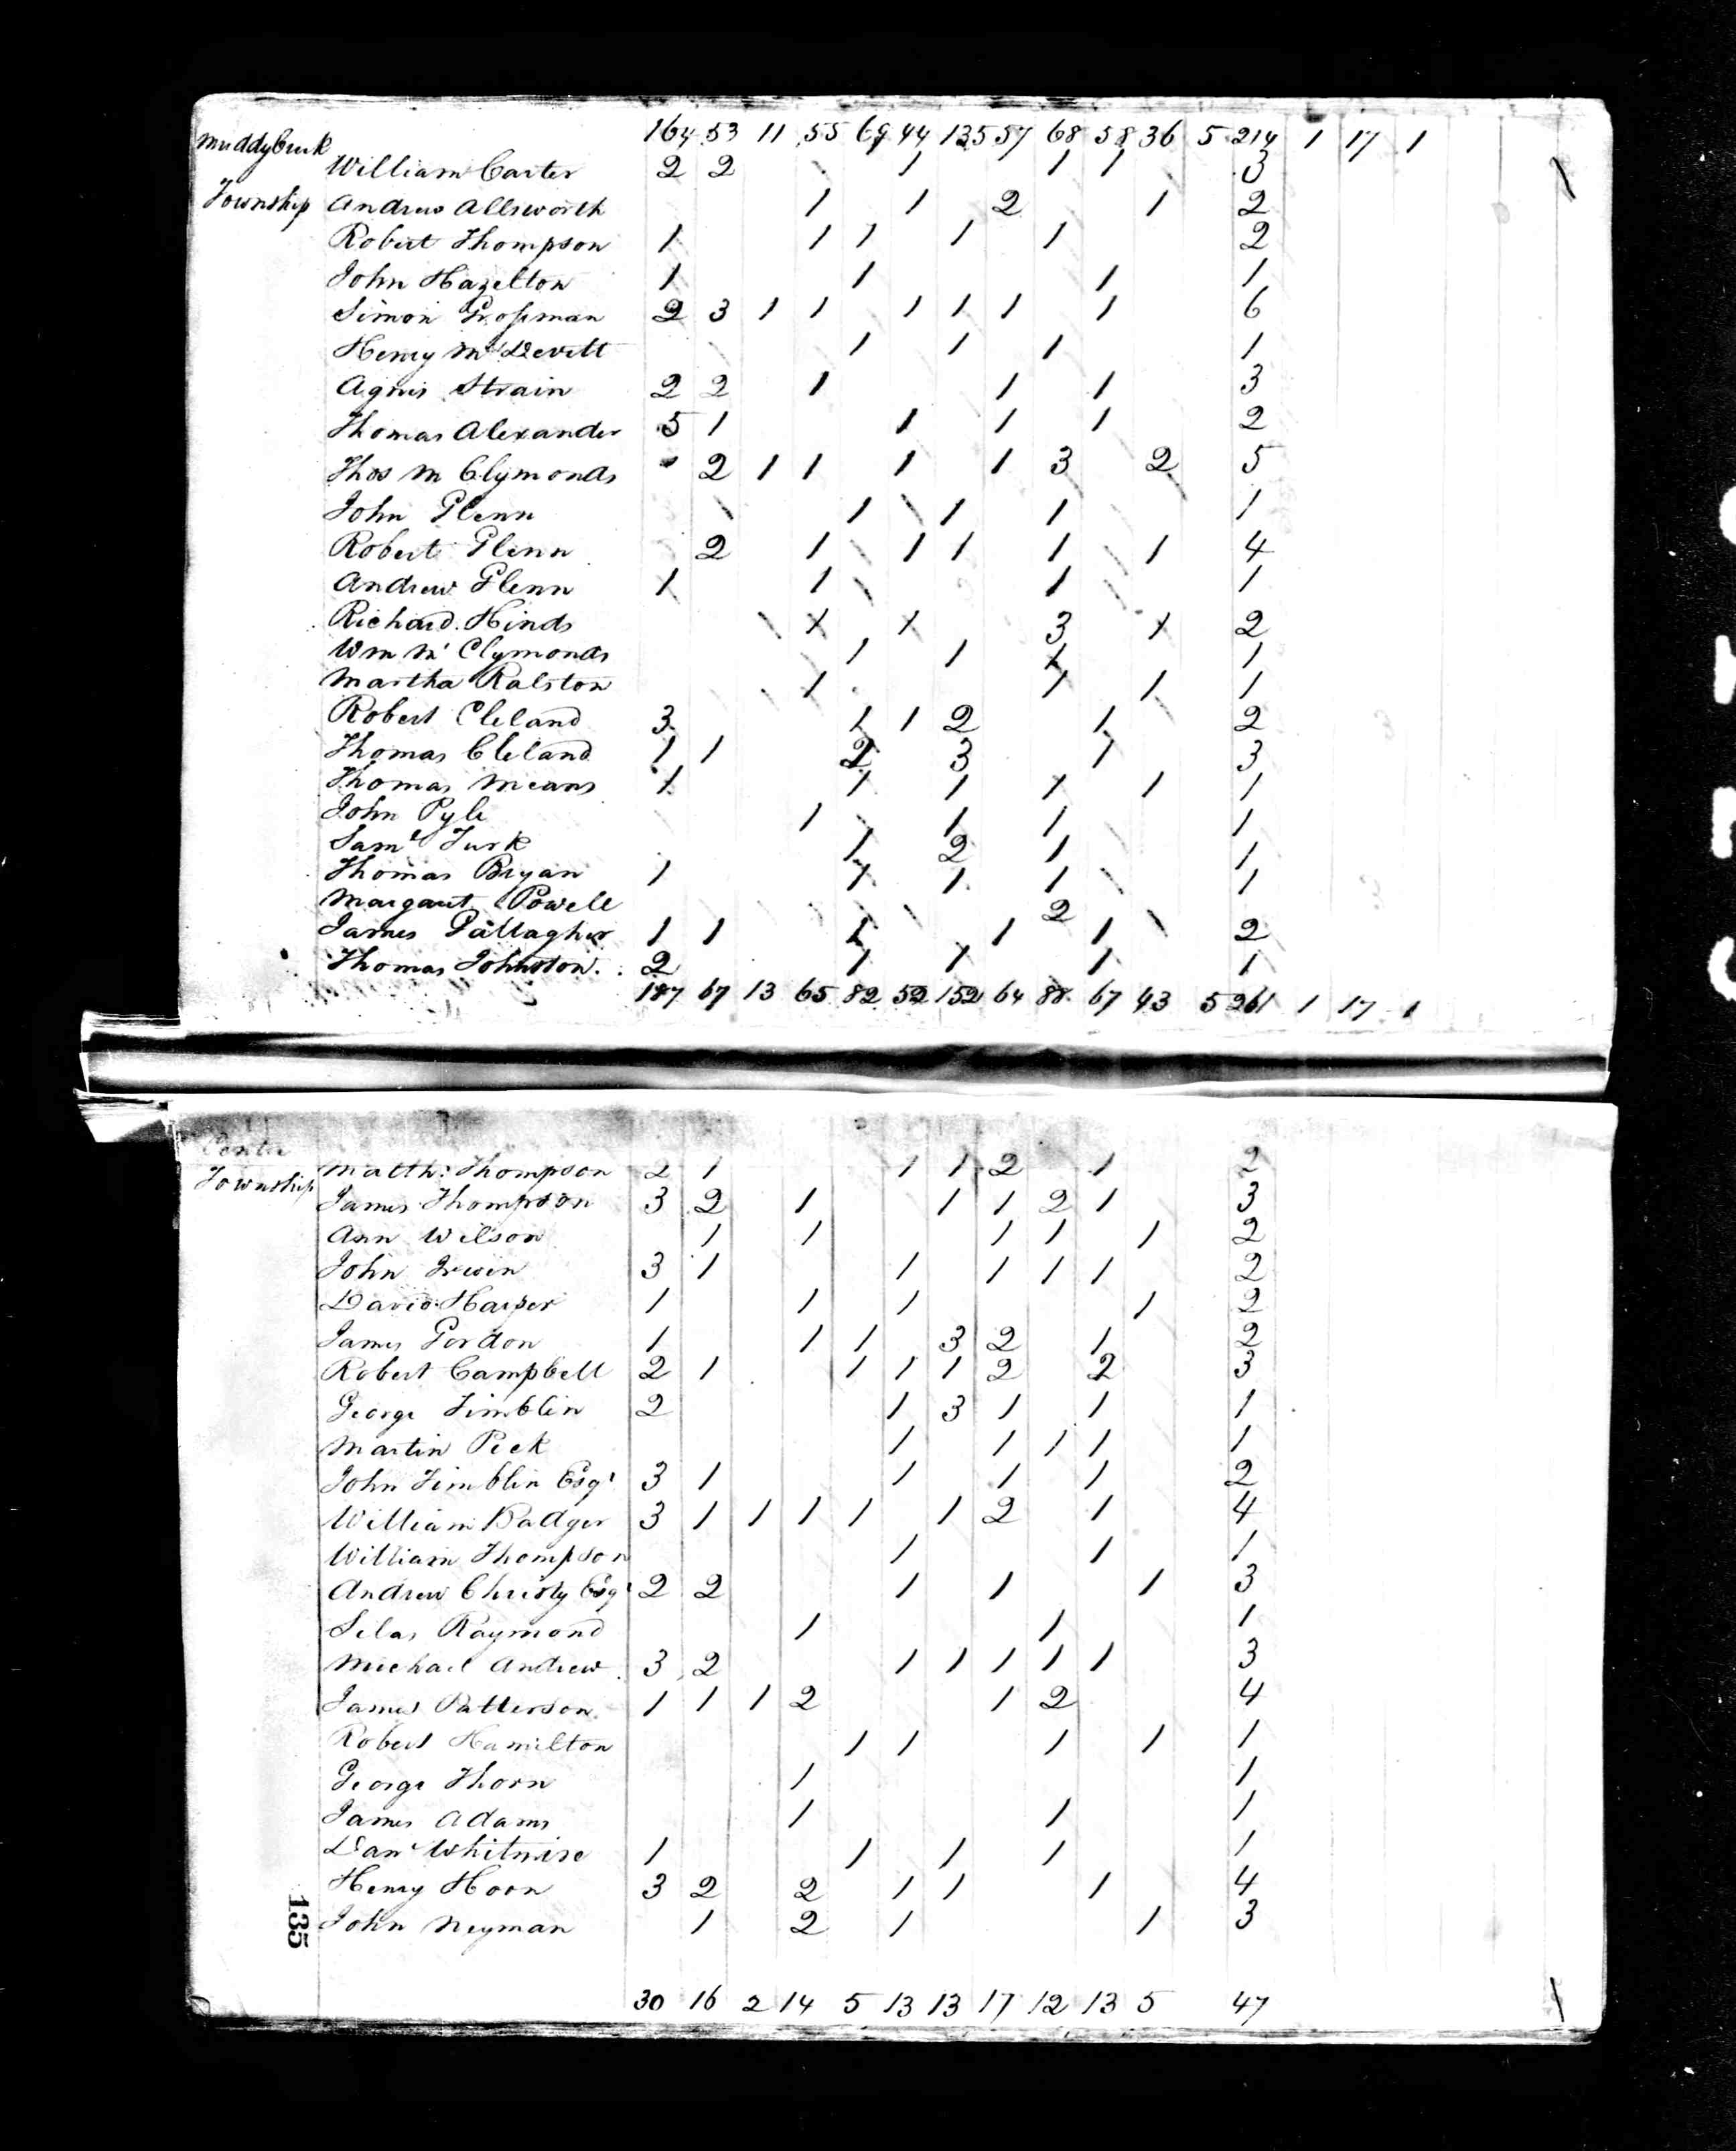 Muddycreek 164 53 11 55 69 44 135 57 68 58 36 5 214 1 17 1
William Carter 2 2 1 1 1 3
Township Andrew Allsworth 1 1 2 1 2
Robert Thompson 1 1 1 1 1 2
John Hazelton 1 1 1 1
Simon Grossman 2 3 1 1 1 1 1 1 6
Henry McDevitt 1 1 1 1
Agnis Strain 2 2 1 1 1 3
Thomas Alexander 5 1 1 1 1 2
Thos M Clymonds 2 1 1 1 1 3 2 5
John Glenn 1 1 1 1
Robert Glenn 2 1 1 1 1 1 4
Andrew Glenn 1 1 1 1
Richard Hinds 1 1 3 1 2
Wm Mc Clymonds 1 1 1 1
Martha Ralston 1 1 1 1
Robert Cleland 3 1 1 2 1 2
Thomas Cleland 1 1 2 3 1 3
Thomas Means 1 1 1 1 1 1
John Pyle 1 1 1 1
Saml Turk 1 2 1 1
Thomas Bryan 1 1 1 1 1
Margaret Powell 2
James Gallagher 1 1 1 1 1 2
Thomas Johnston 2 1 1 1 1
187 67 13 65 82 52 152 64 88 67 43 5 261 1 17 1
Center
Township Matthw Thompson 2 1 1 1 2 1 2
James Thompson 3 2 1 1 1 2 1 3
Ann Wilson 1 1 1 1 1 2
John Irwin 3 1 1 1 1 1 2
David Harper 1 1 1 1 2
James Gordon 1 1 1 3 2 1 2
Robert Campbell 2 1 1 1 1 2 2 3
George Timblin 2 1 3 1 1 1
Martin Peek 1 1 1 1 1
John Timblin Esqr 3 1 1 1 1 2
William Badger 3 1 1 1 1 1 2 1 4
William Thompson 1 1 1
Andrew Christy Esqr 2 2 1 1 1 3
Silas Raymond 1 1 1
Michael Andrew 3 2 1 1 1 1 1 3
James Patterson 1 1 1 2 1 2 4
Robert Hamilton 1 1 1 1 1
George Thorn 1 1
James Adams 1 1 1
Danl Whitmire 1 1 1 1 1
Henry Hoon 3 2 2 1 1 1 4
135 John Neyman 1 2 1 1 3
30 16 2 14 5 13 13 17 12 13 5 47